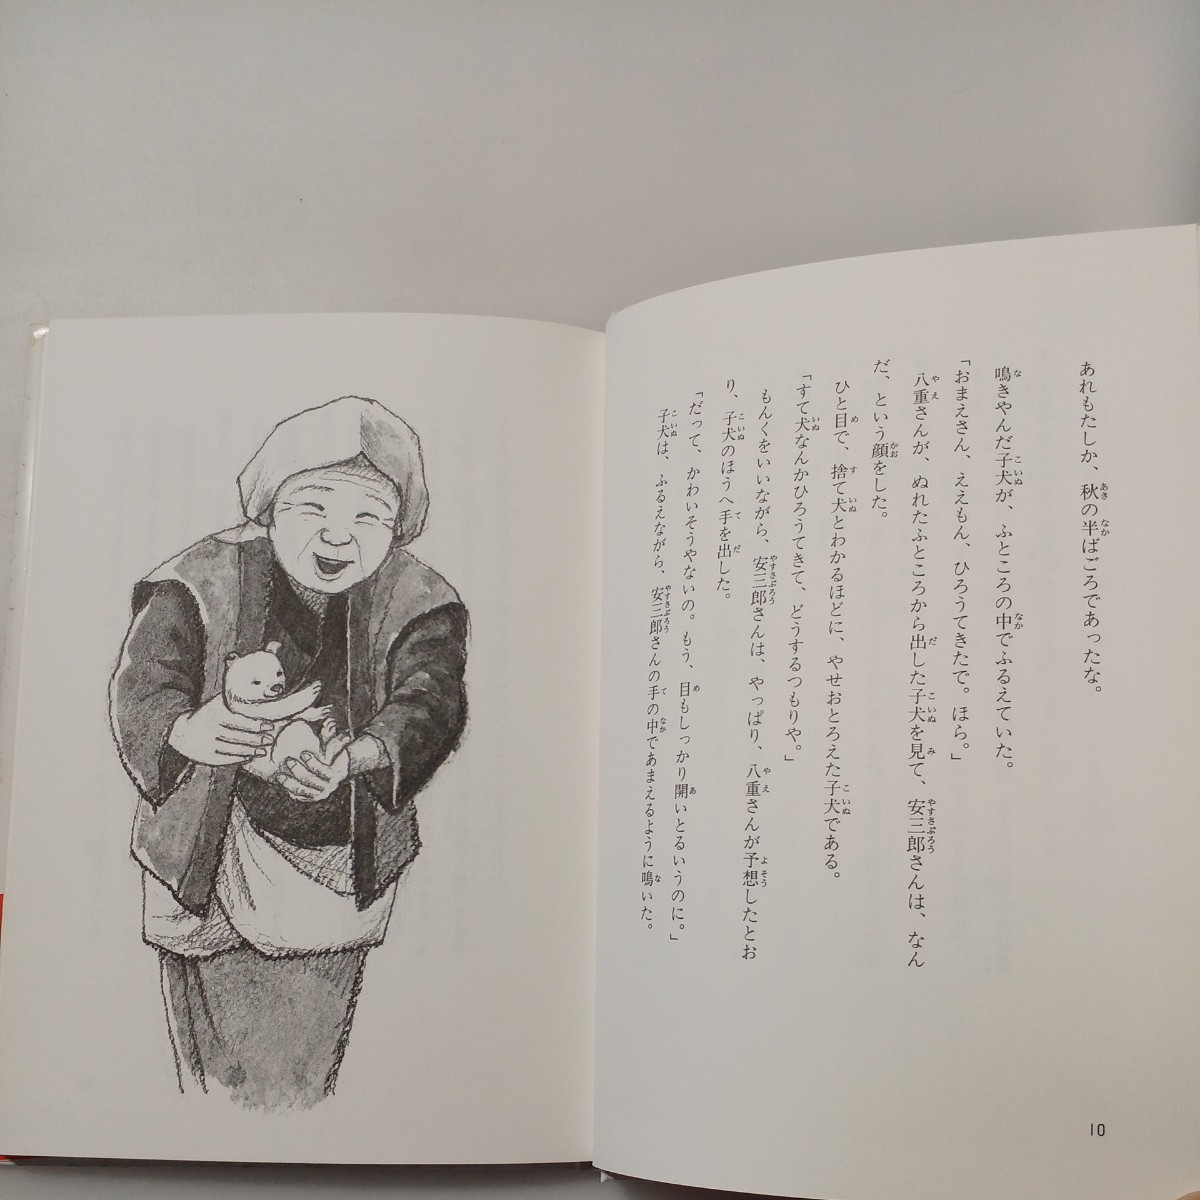 あれもたしか、秋の半ばごろであったな。
鳴きやんだ子犬が、ふところの中でふるえていた。
「おまえさん、ええもん、ひろうてきたで。ほら。」
八重さんが、ぬれたふところから出した子犬を見て、安三郎さんは、なん
だ、という顔をした。
ひと目で、捨て犬とわかるほどに、やせおとろえた子犬である。
「すて犬なんかひろうてきて、どうするつもりや。」
もんくをいいながら、安三郎さんは、やっぱり、八重さんが予想したとお
り、子犬のほうへ手を出した。
「だって、かわいそうやないの。もう、目もしっかり開いとるいうのに。」
子犬は、ふるえながら、安三郎さんの手の中であまえるように鳴いた。
10